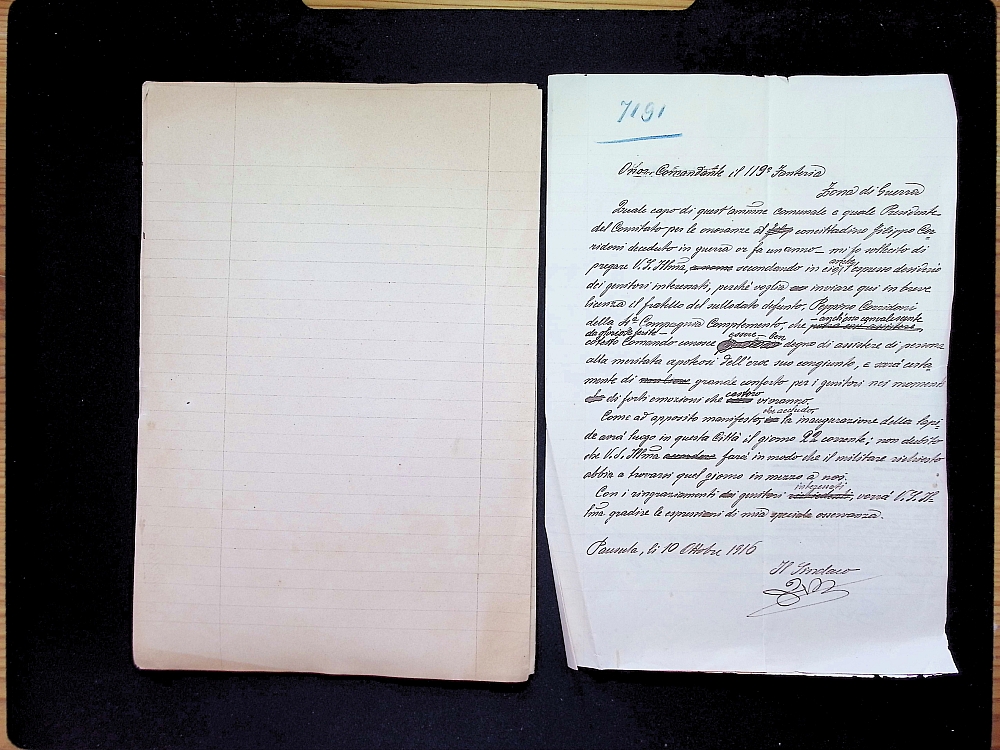 7191
Onor. Comandante il 119º Fanteria
Zona di Guerra
Quale capo di quest'amm.ne comunale e quale Presidente
del Comitato per le onoranze al concittadino Filippo Cor-
ridoni deceduto in guerra or fa un anno – mi fo sollecito di
pregare V.S. Ill.ma, secondando in ciò anche l'espresso desiderio
dei genitori interessati, perché voglia inviare qui in breve
licenza il fratello del sullodato defunto, Peppino Corridoni
della 4ª Compagnia Complemento, che anch'esso convalescente
da gloriose ferite –
cotesto Comando conosce essere ben degno di assistere di persona
alla meritata apoteosi dell'eroe suo congiunto, e sarà certa-
mente di grande conforto per i genitori nei momenti
di forti emozioni che costoro vivranno.
Come ad apposito manifesto, che accludo, la inaugurazione della lapi-
de avrà luogo in questa Città il giorno 22 corrente; non dubito
che V.S. Ill.ma farà in modo che il militare richiesto
abbia a trovarsi quel giorno in mezzo a noi.
Con i ringraziamenti dei genitori interessati verrà V.S. Il-
l.ma gradire le espressioni di mia speciale osservanza.
Pausula, li 10 Ottobre 1916
Il Sindaco